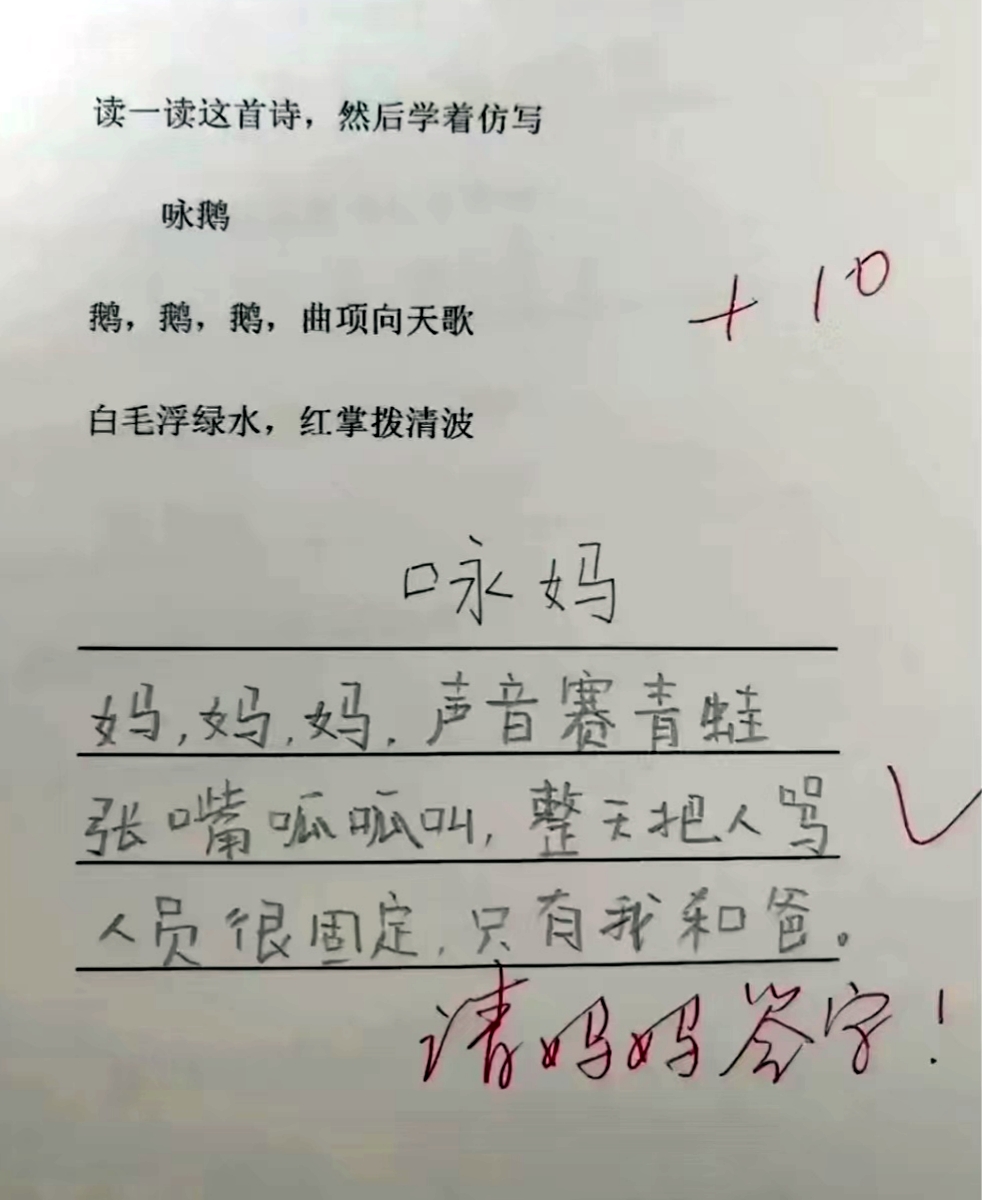 读一读这首诗，然后学着仿写
咏鹅
鹅，鹅，鹅，曲项向天歌
白毛浮绿水，红掌拨清波
+10
咏妈
妈,妈,妈,声音赛青蛙
张嘴呱呱叫,整天把人骂
人员很固定,只有我和爸。
请妈妈签字!